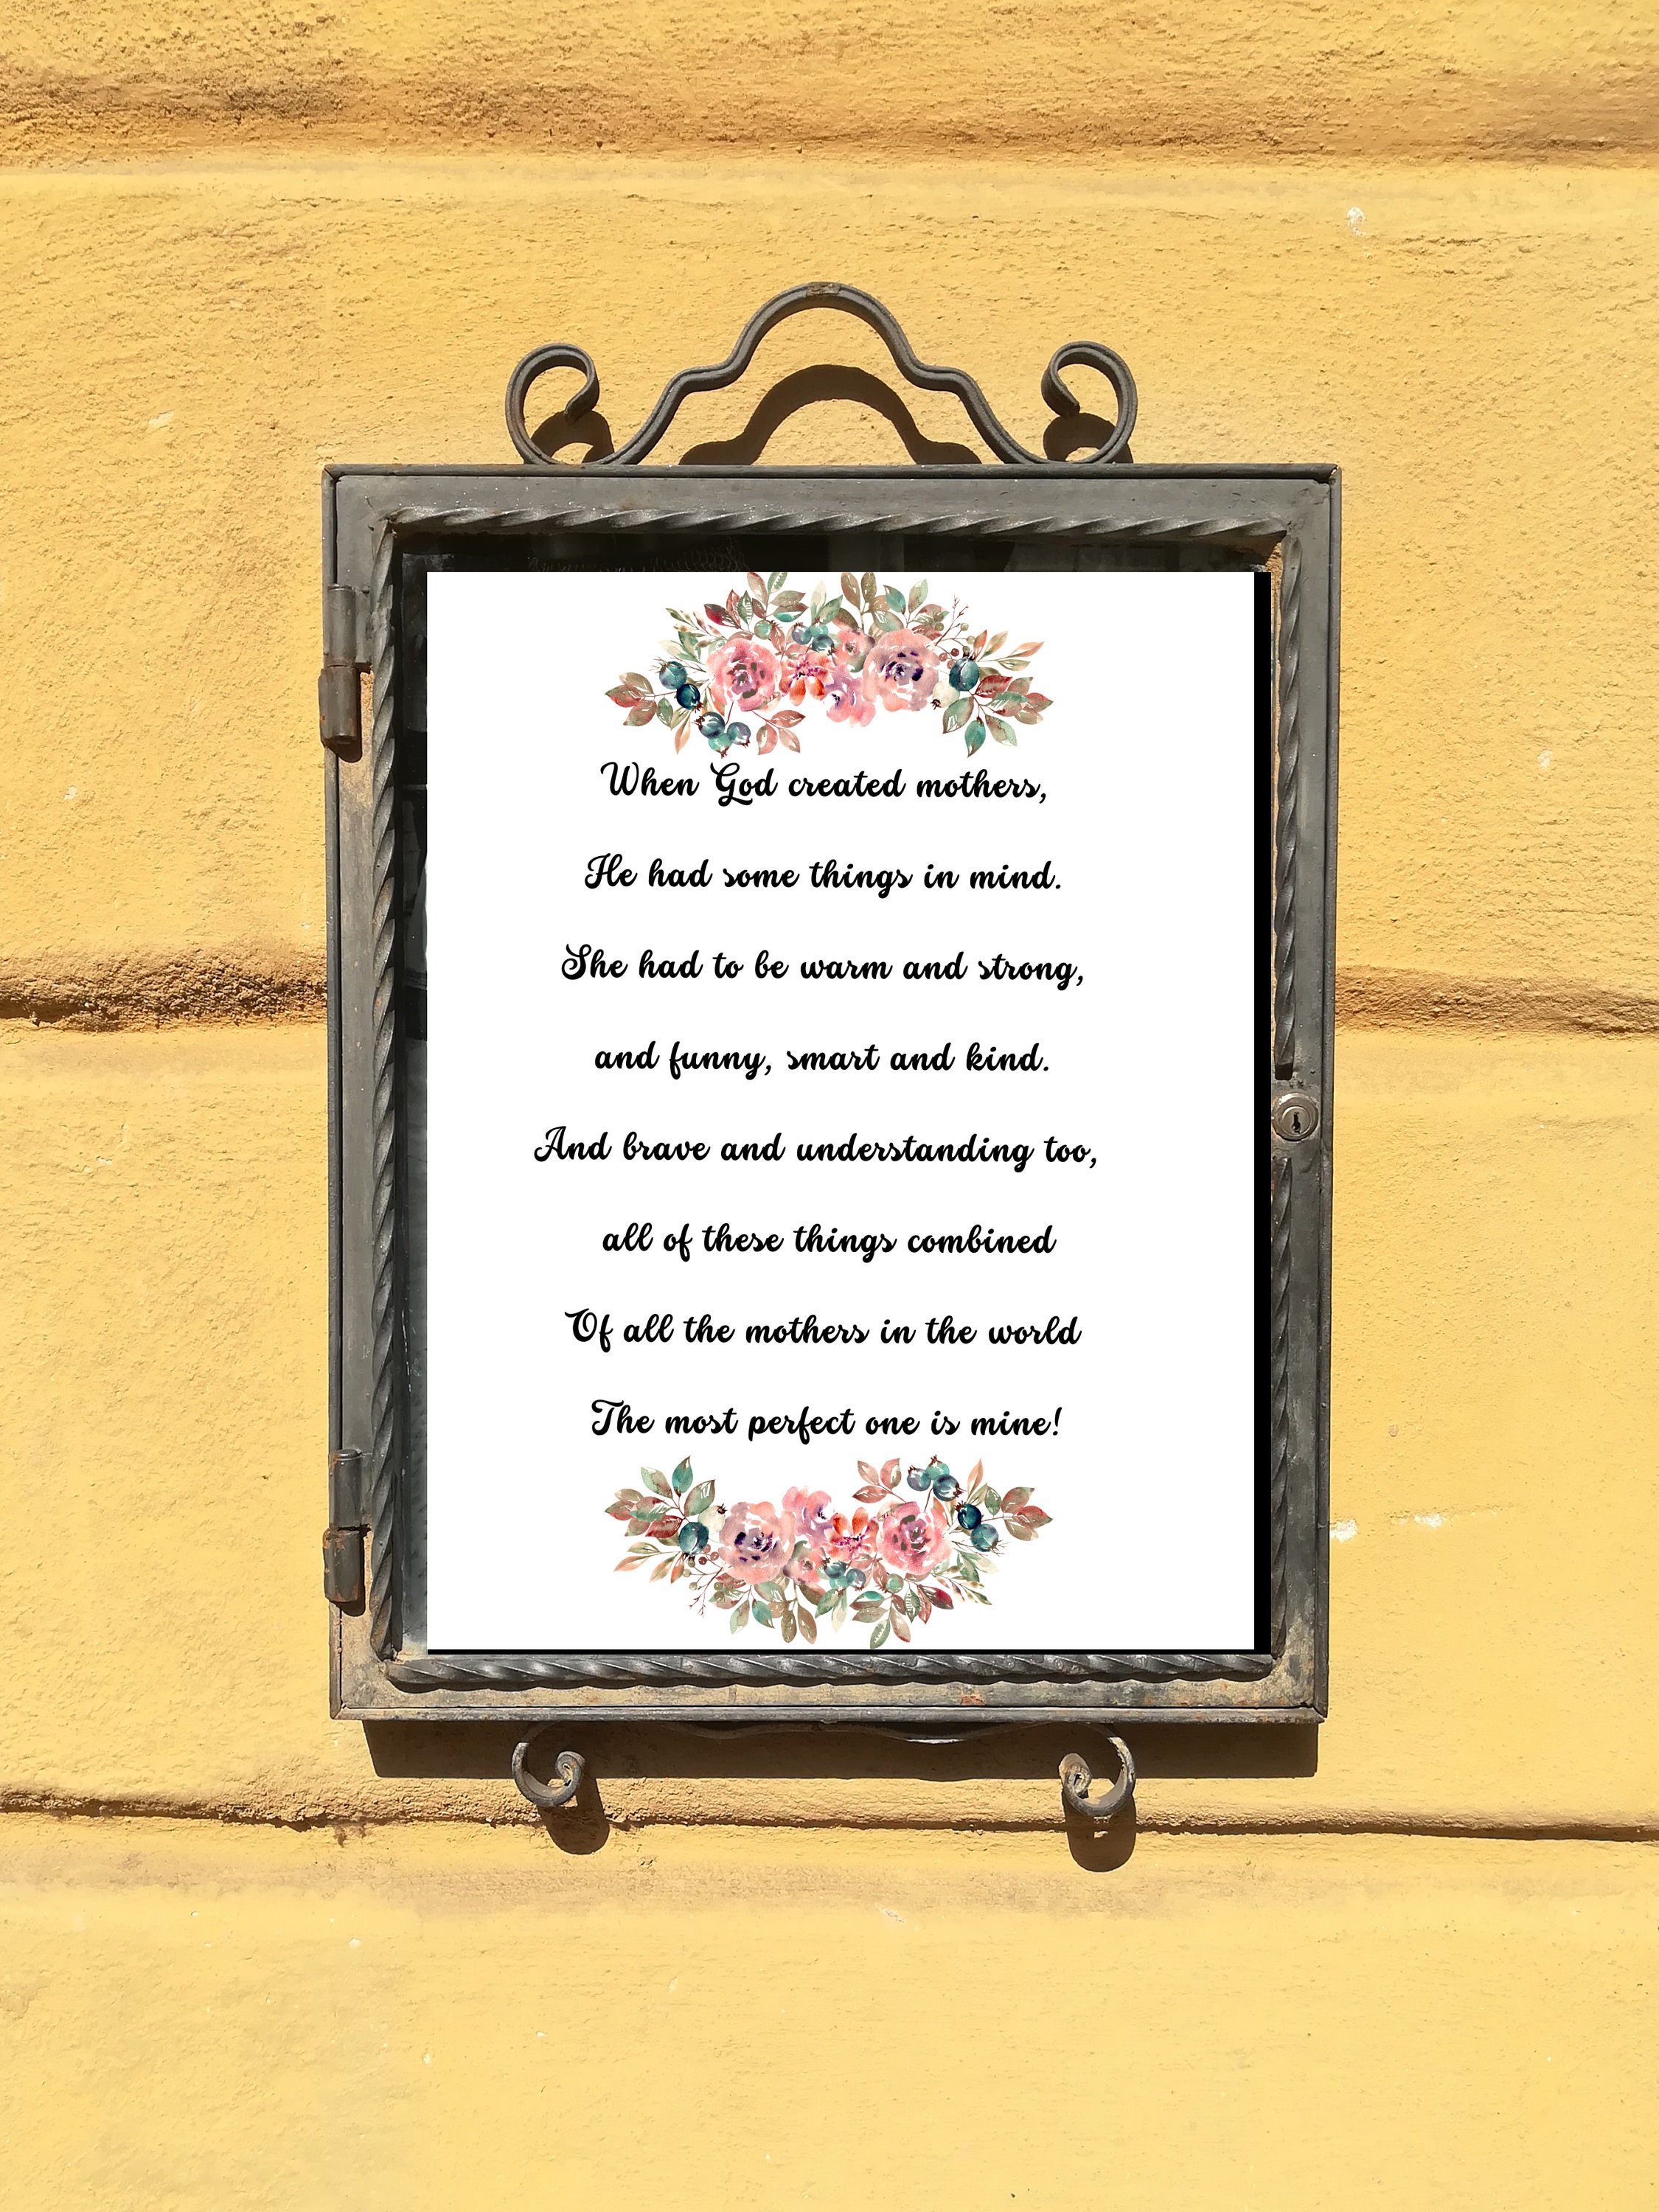 When God created mothers,
He had some things in mind.
She had to be warm and strong,
and funny, smart and kind.
And brave and understanding too,
all of these things combined
Of all the mothers in the world
The most perfect one is mine!